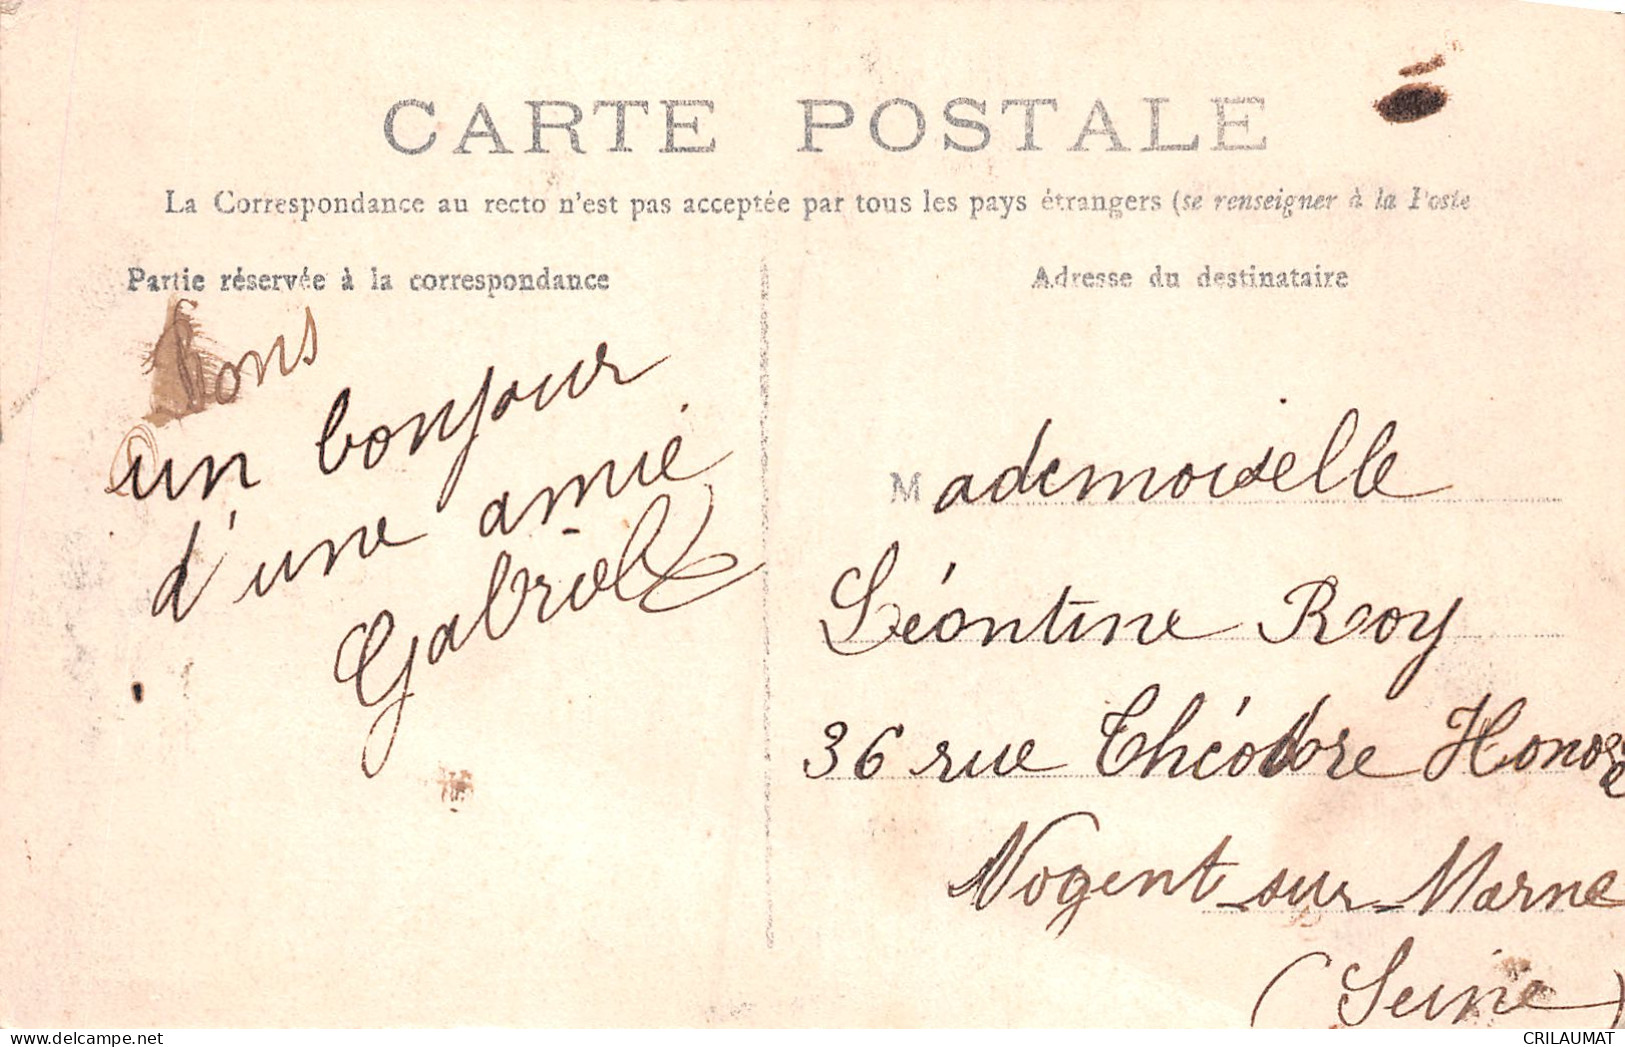 CARTE POSTALE
La Correspondance au recto n'est pas acceptée par tous les pays étrangers (se renseigner à la Poste
Partie réservée à la correspondance
bons
un bonjour
d'une amie
Gabrielle
Adresse du destinataire
Mademoiselle
Léontine Roy
36 rue Théodore Honoré
Nogent-sur-Marne
(Seine)
CRILAUMAT